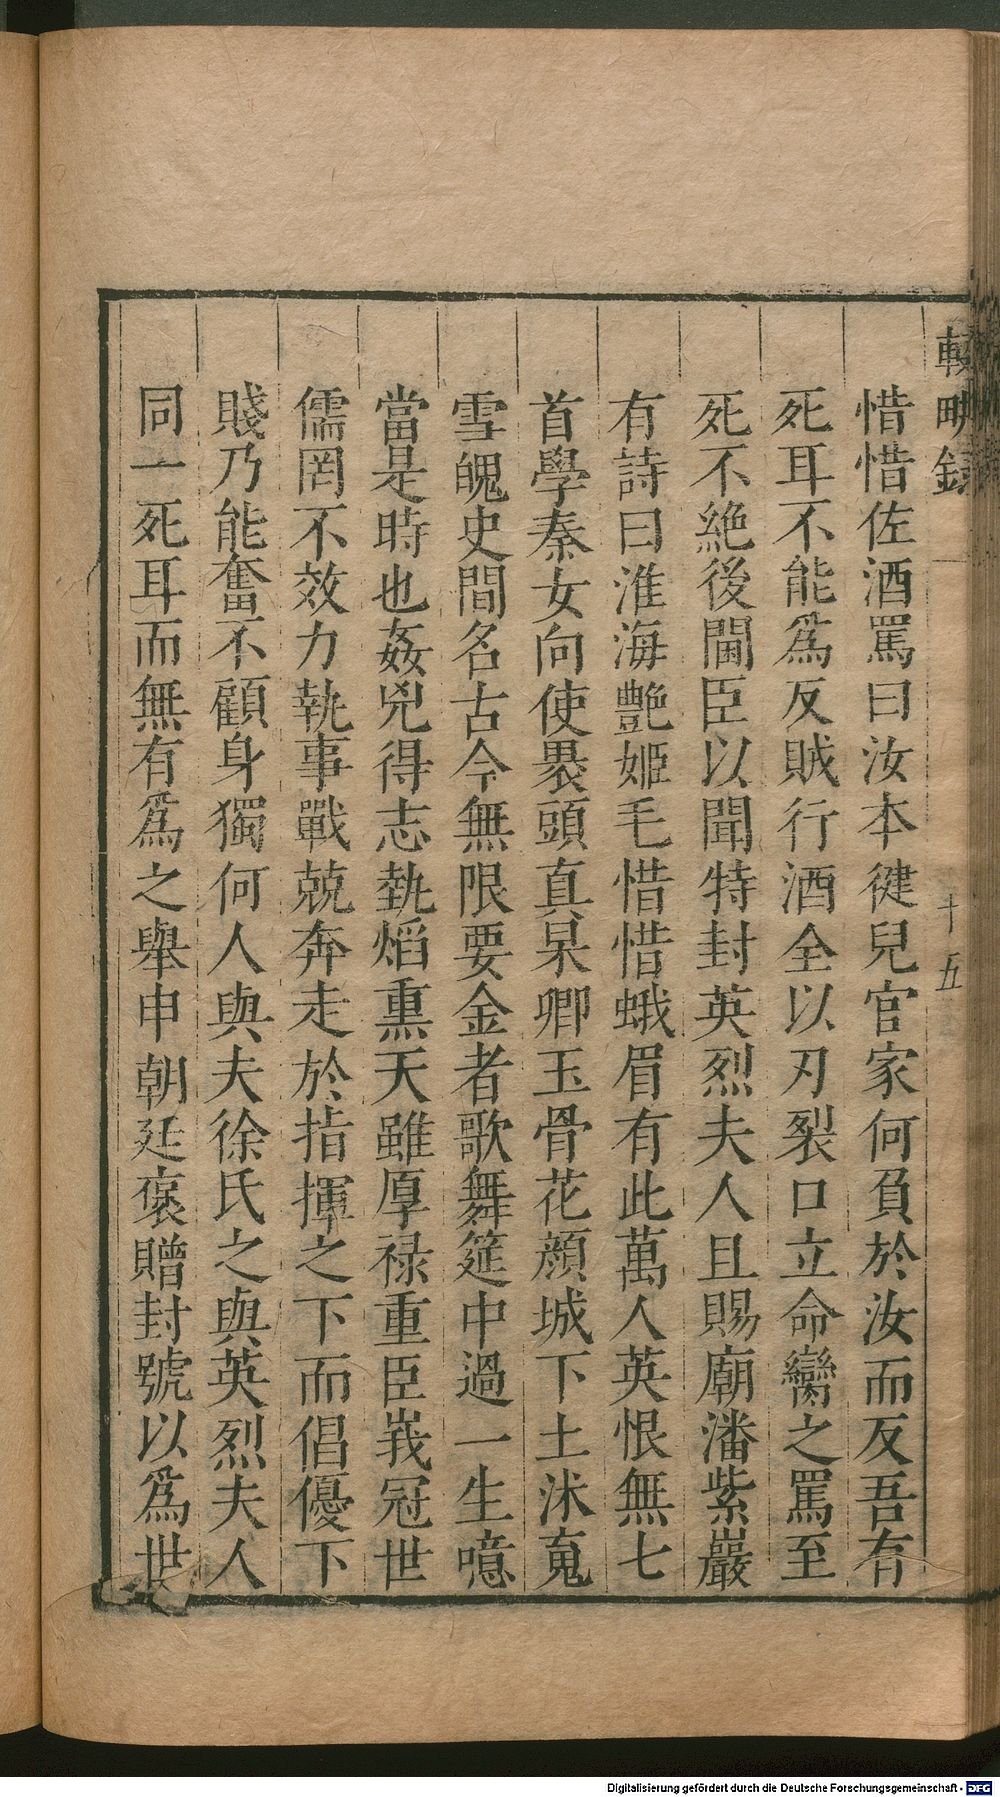 輟畊錄
十五
惜惜佐酒罵曰汝本徤兒官家何負於汝而反吾有
死耳不能爲反賊行酒全以刃裂口立命臠之罵至
死不絶後閫臣以聞特封英烈夫人且賜廟潘紫巖
有詩曰淮海艶姬毛惜惜蛾眉有此萬人英恨無七
首學秦女向使褁頭真杲卿玉骨花顔城下土沭䰟
雪魄史間名古今無限要金者歌舞筵中過一生噫
當是時也姦兇得志埶焰熏天雖厚禄重臣峩冠世
儒罔不效力執事戰兢奔走於指揮之下而倡優下
賤乃能奮不顧身獨何人與夫徐氏之與英烈夫人
同一死耳而無有爲之舉申朝廷褒贈封號以爲世
Digitalisierung gefördert durch die Deutsche Forschungsgemeinschaft - DFG